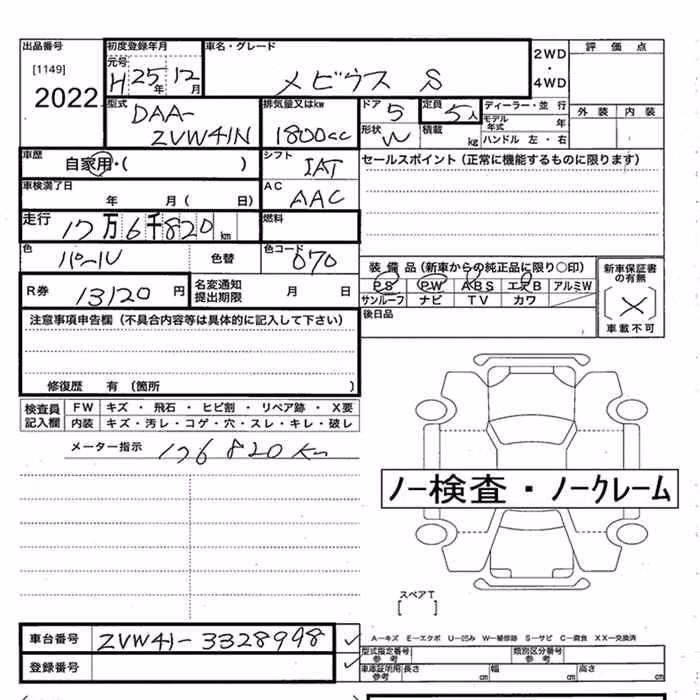 出品番号 初度登録年月 車名・グレード 評価点
[1149] 元号 2WD
2022 H25年12月 メビウス S ・
4WD
型式 排気量又はkw ドア 定員 ディーラー・並行 外装 内装
DAA- 5 5人 モデル年式 年
ZVW41N 1800cc 形状 W 積載 kg ハンドル 左・右
車歴 シフト セールスポイント (正常に機能するものに限ります)
自家用・( ) IAT
車検満了日 AC
年 月( 日) AAC
走行 燃料
17万6千820km
色 色替 色コード 装備品 (新車からの純正品に限り○印) 新車保証書の有無
パール 070 PS PW ABS エアB アルミW
R券 13120円 名変通知提出期限 月 日 サンルーフ ナビ TV カワ (×)
注意事項申告欄 (不具合内容等は具体的に記入して下さい) 後日品 車載不可
修復歴 有 (箇所 )
検査員記入欄 FW キズ ・ 飛石 ・ ヒビ割 ・ リペア跡 ・ X要
内装 キズ・汚レ・コゲ・穴・スレ・キレ・破レ
メーター指示 176820Km
ノー検査・ノークレーム
スペアT
[ ]
車台番号 ZVW41-3328998 A-キズ E-エクボ U-凹み W-補修跡 S-サビ C-腐食 XX-交換済
型式指定番号 参考 類別区分番号 参考
登録番号 車庫証明用 参考 長さ cm 幅 cm 高さ cm